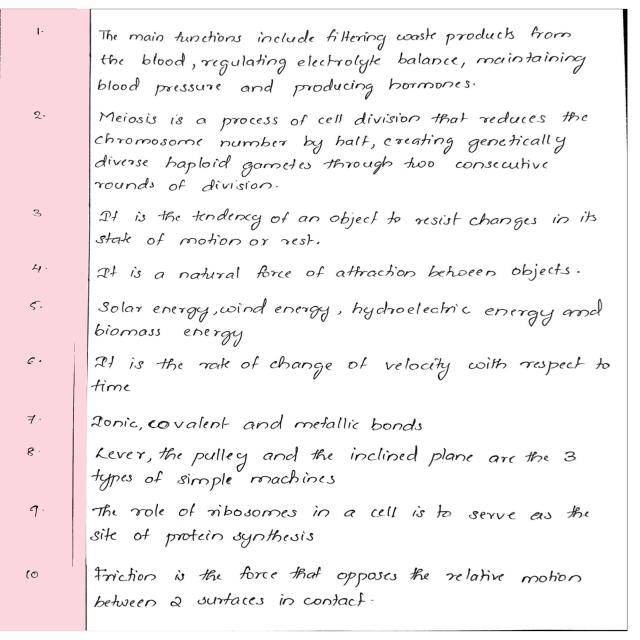 1. The main functions include filtering waste products from
the blood, regulating electrolyte balance, maintaining
blood pressure and producing hormones.
2. Meiosis is a process of cell division that reduces the
chromosome number by half, creating genetically
diverse haploid gametes through two consecutive
rounds of division.
3 It is the tendency of an object to resist changes in its
state of motion or rest.
4. It is a natural force of attraction between objects.
5. Solar energy, wind energy, hydroelectric energy and
biomass energy
6. It is the rate of change of velocity with respect to
time
7. Ionic, covalent and metallic bonds
8. Lever, the pulley and the inclined plane are the 3
types of simple machines
9. The role of ribosomes in a cell is to serve as the
site of protein synthesis
10 Friction is the force that opposes the relative motion
between 2 surfaces in contact.